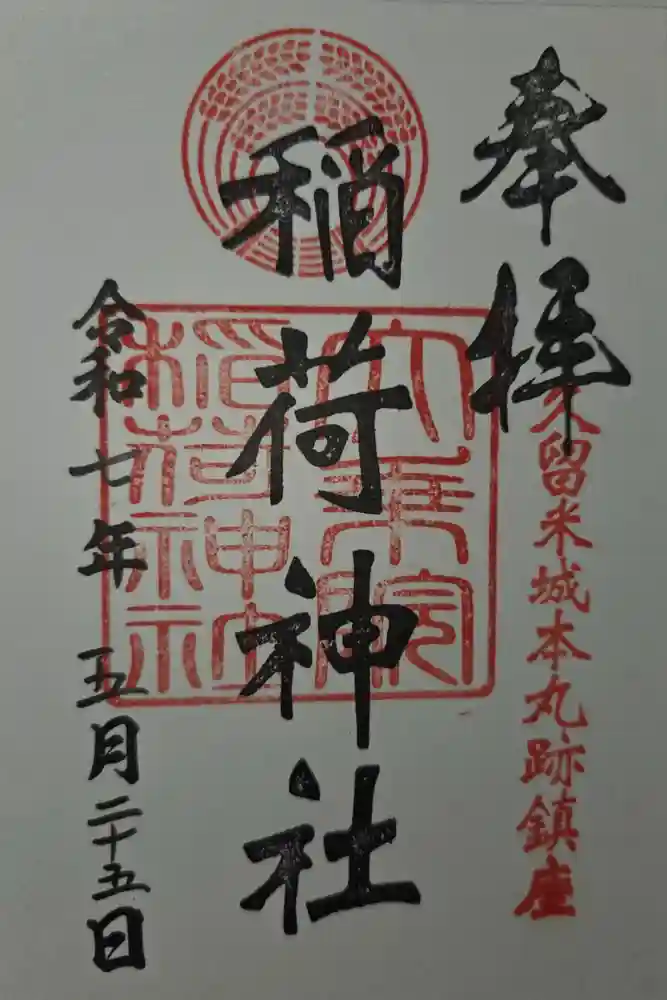 奉拝
久留米城本丸跡鎮座
稲荷神社
稲荷神社
令和七年五月二十五日